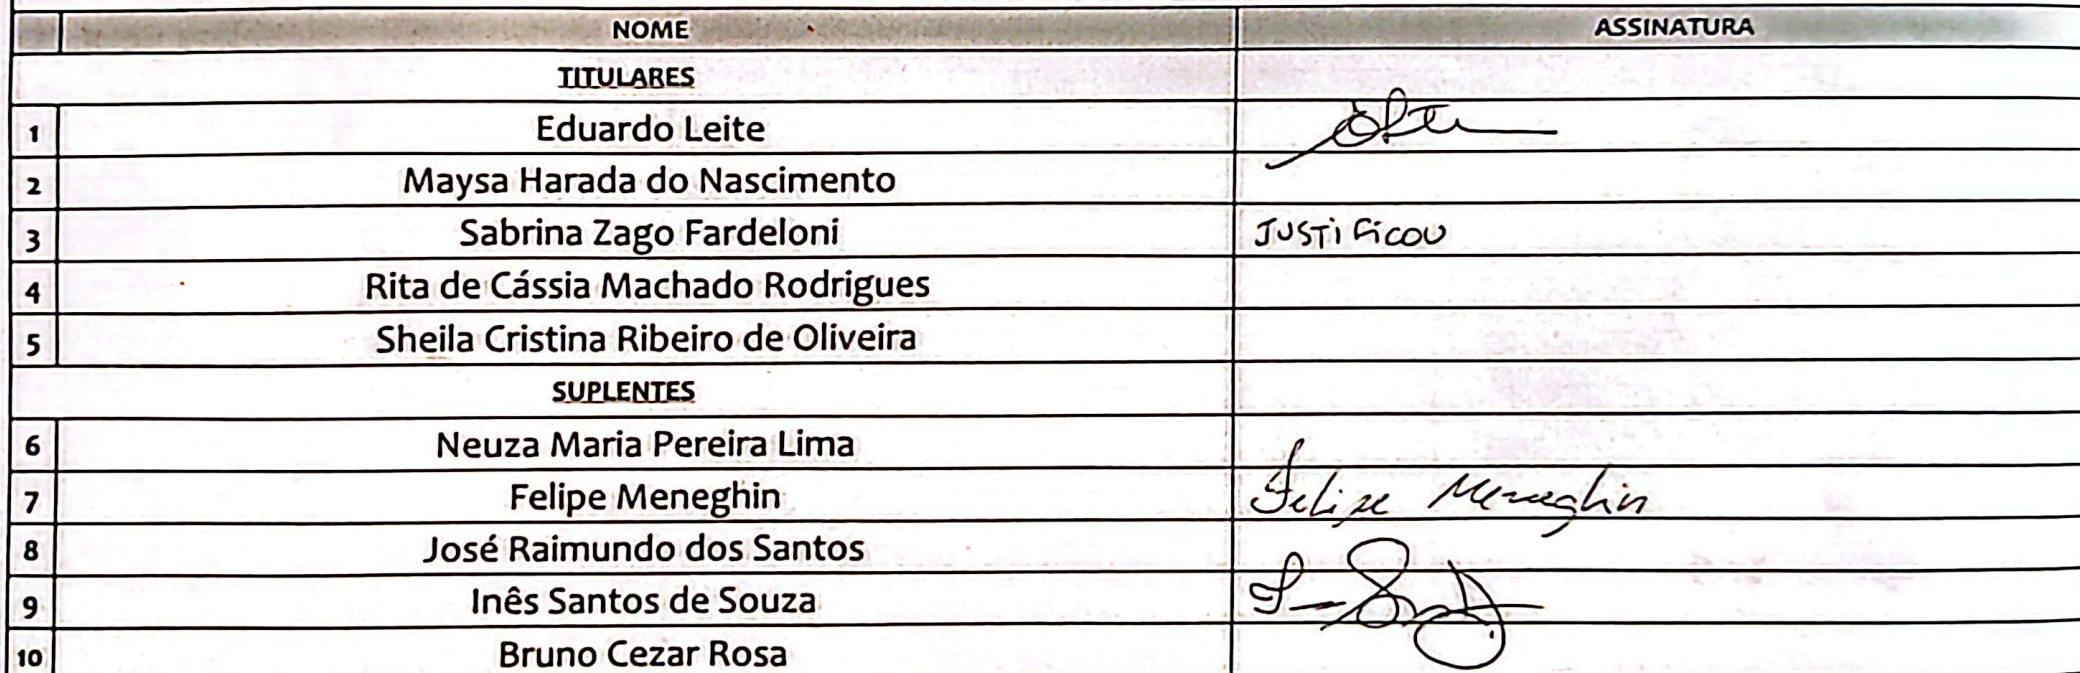 NOME ASSINATURA
TITULARES
1 Eduardo Leite
2 Maysa Harada do Nascimento
3 Sabrina Zago Fardeloni JUSTIFICOU
4 Rita de Cássia Machado Rodrigues
5 Sheila Cristina Ribeiro de Oliveira
SUPLENTES
6 Neuza Maria Pereira Lima
7 Felipe Meneghin Felipe Meneghin
8 José Raimundo dos Santos
9 Inês Santos de Souza
10 Bruno Cezar Rosa